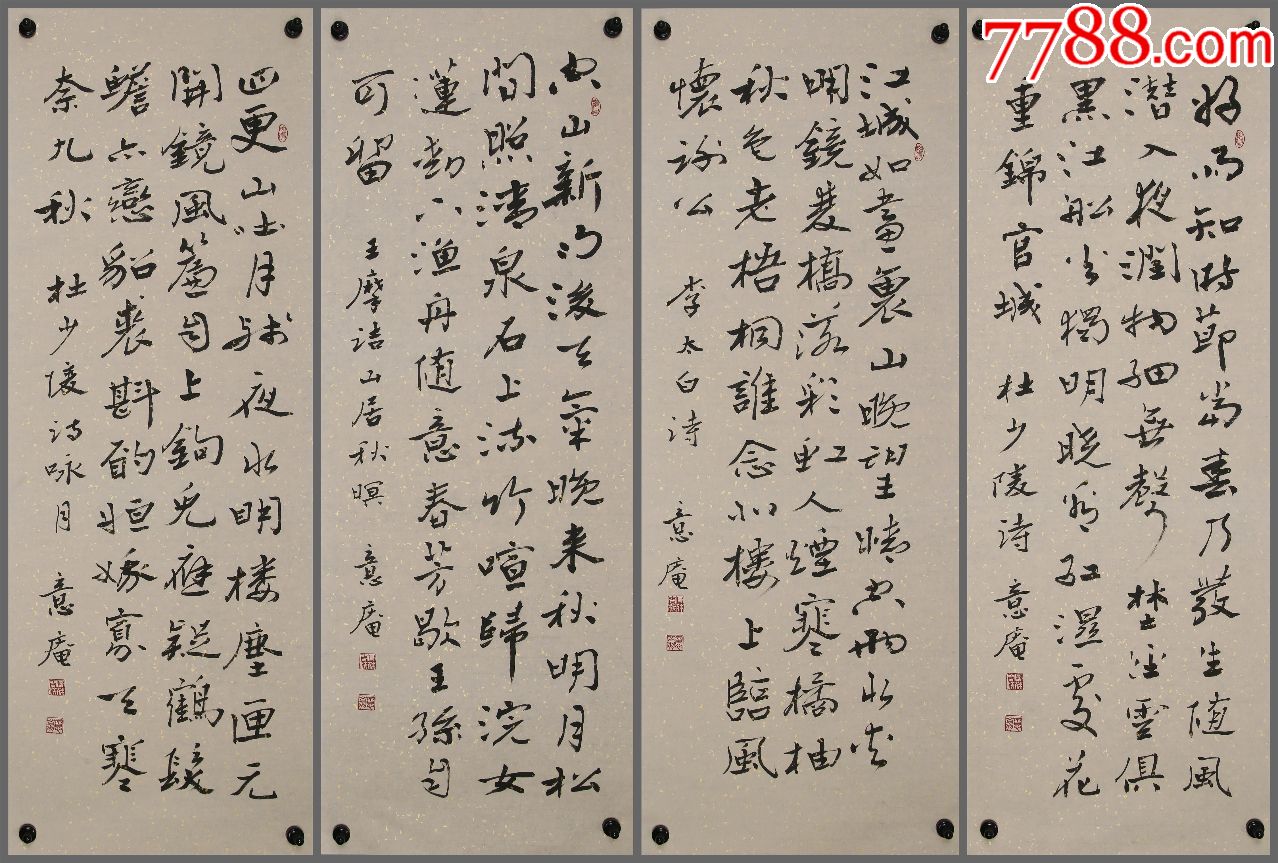 7788.com
好雨知時節當春乃發生随風
潛入夜潤物細無聲埜迳雲俱
黑江船火獨明曉看紅濕處花
重錦官城 杜少陵诗 意庵
江城如畫裏山晚望晴空兩水夾
明鏡雙橋落彩虹人煙寒橘柚
秋色老梧桐誰念北樓上臨風
懷謝公 李太白诗 意庵
空山新雨後天氣晚来秋明月松
間照清泉石上流竹喧歸浣女
蓮動下漁舟随意春芳歇王孫自
可留 王摩诘山居秋暝 意庵
四更山吐月残夜水明楼塵匣元
開鏡風簾自上鉤兔應疑鶴髮
蟾亦戀貂裘斟酌姮娥寡天寒
奈九秋 杜少陵诗咏月 意庵